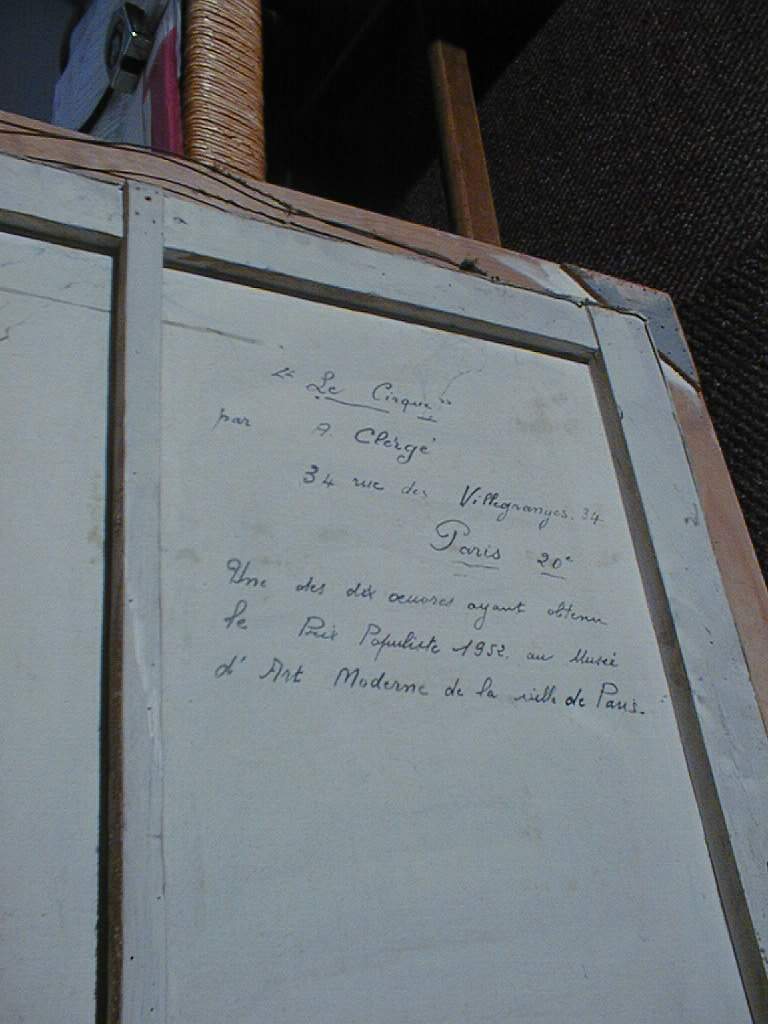 " Le Cirque "
par A. Clergé
34 rue des Villegranges. 34
Paris 20e
Une des dix œuvres ayant obtenu
le Prix Populiste 1952. au Musée
d'Art Moderne de la ville de Paris.